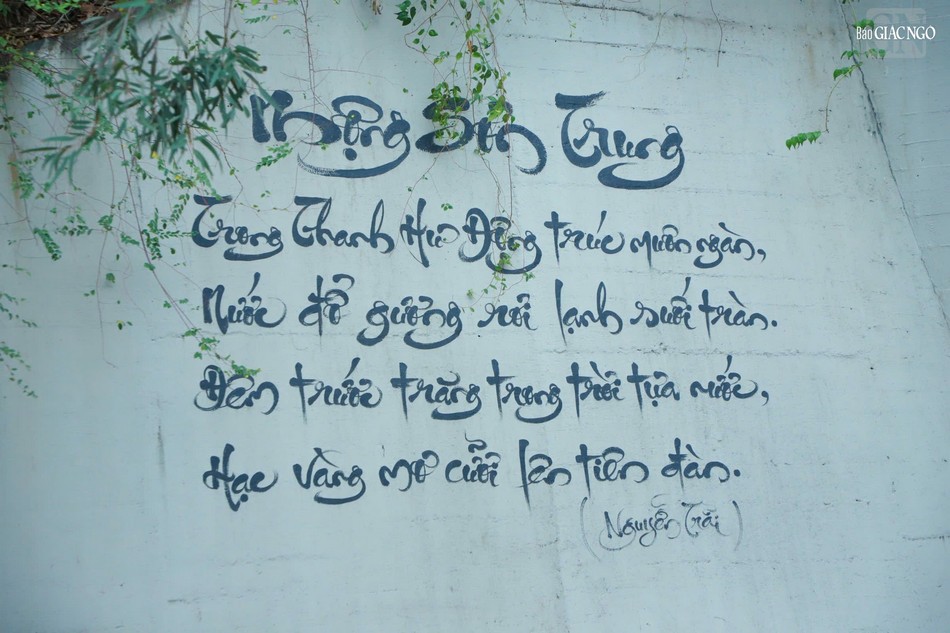 Báo GIÁC NGỘ
Mộng Sơn Trung
Trong Thanh Hư Động trúc muôn ngàn,
Nước đổ gương rơi lạnh suối tràn.
Đêm trước trăng trong trời tựa nước,
Hạc vàng mơ cưỡi lên tiên đàn.
(Nguyễn Trãi)